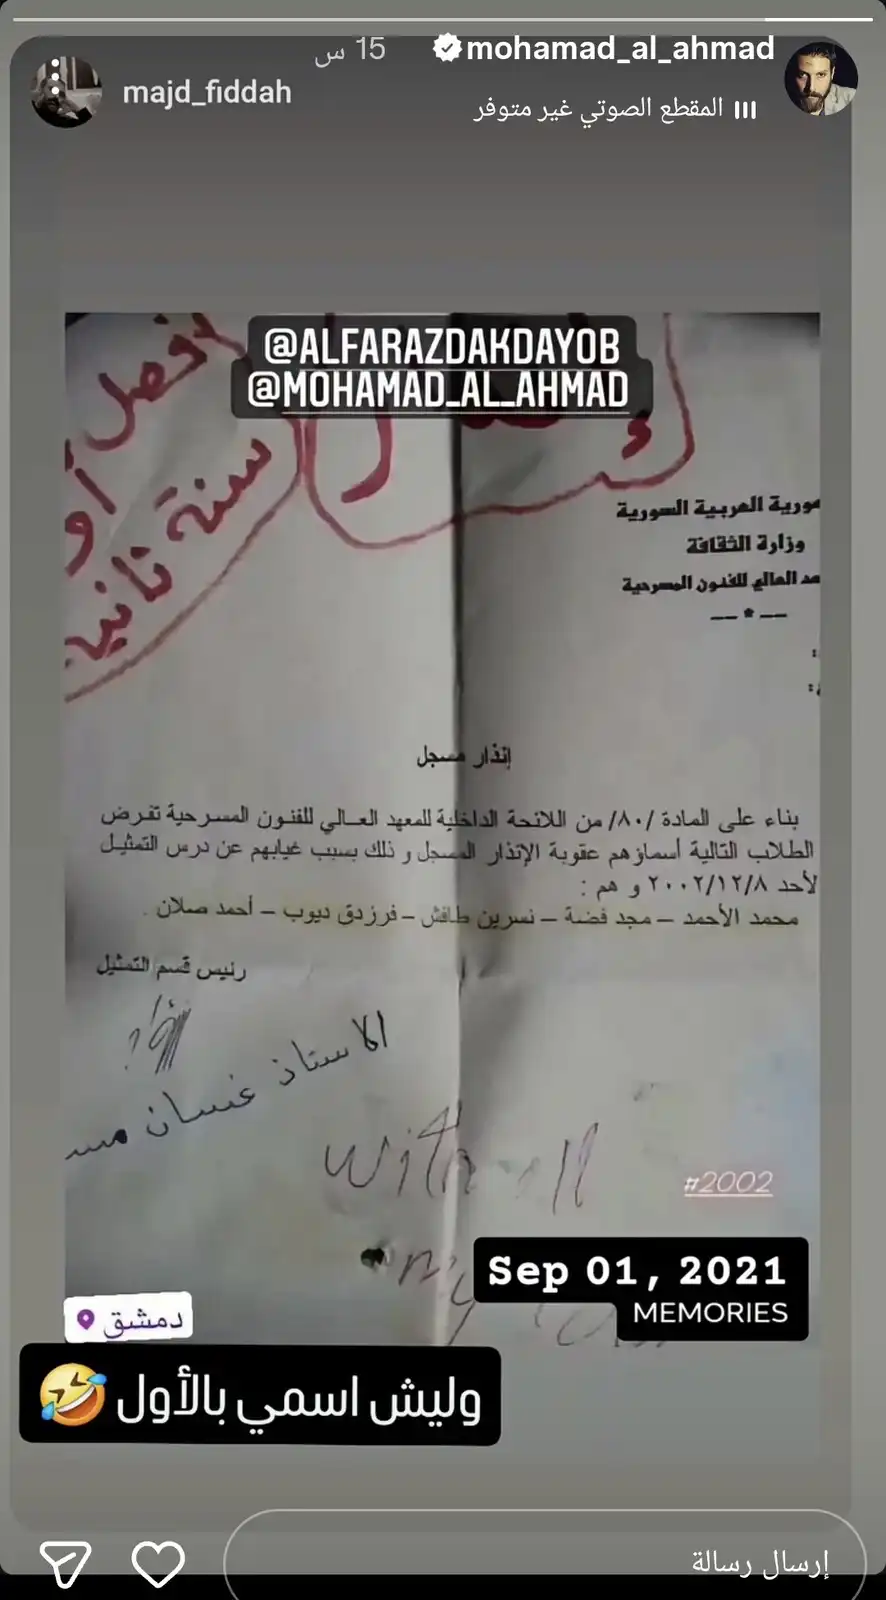 mohamad_al_ahmad
15 س
المقطع الصوتي غير متوفر
majd_fiddah
@ALFARAZDAKDAYOB
@MOHAMAD_AL_AHMAD
أفضل
سنة ثانية
أو
ورية العربية السورية
وزارة الثقافة
هد العالي للفنون المسرحية
— * —
إنذار مسجل
بناء على المادة /٨٠/ من اللائحة الداخلية للمعهد العالي للفنون المسرحية تفرض
الطلاب التالية أسماؤهم عقوبة الإنذار المسجل و ذلك بسبب غيابهم عن درس التمثيل
لأحد ٢٠٠٢/١٢/٨ و هم :
محمد الأحمد – مجد فضة – نسرين طافش – فرزدق ديوب – أحمد صلان .
رئيس قسم التمثيل
الاستاذ غسان مس
with all
my
#2002
Sep 01, 2021
MEMORIES
دمشق
وليش اسمي بالأول 🤣
إرسال رسالة